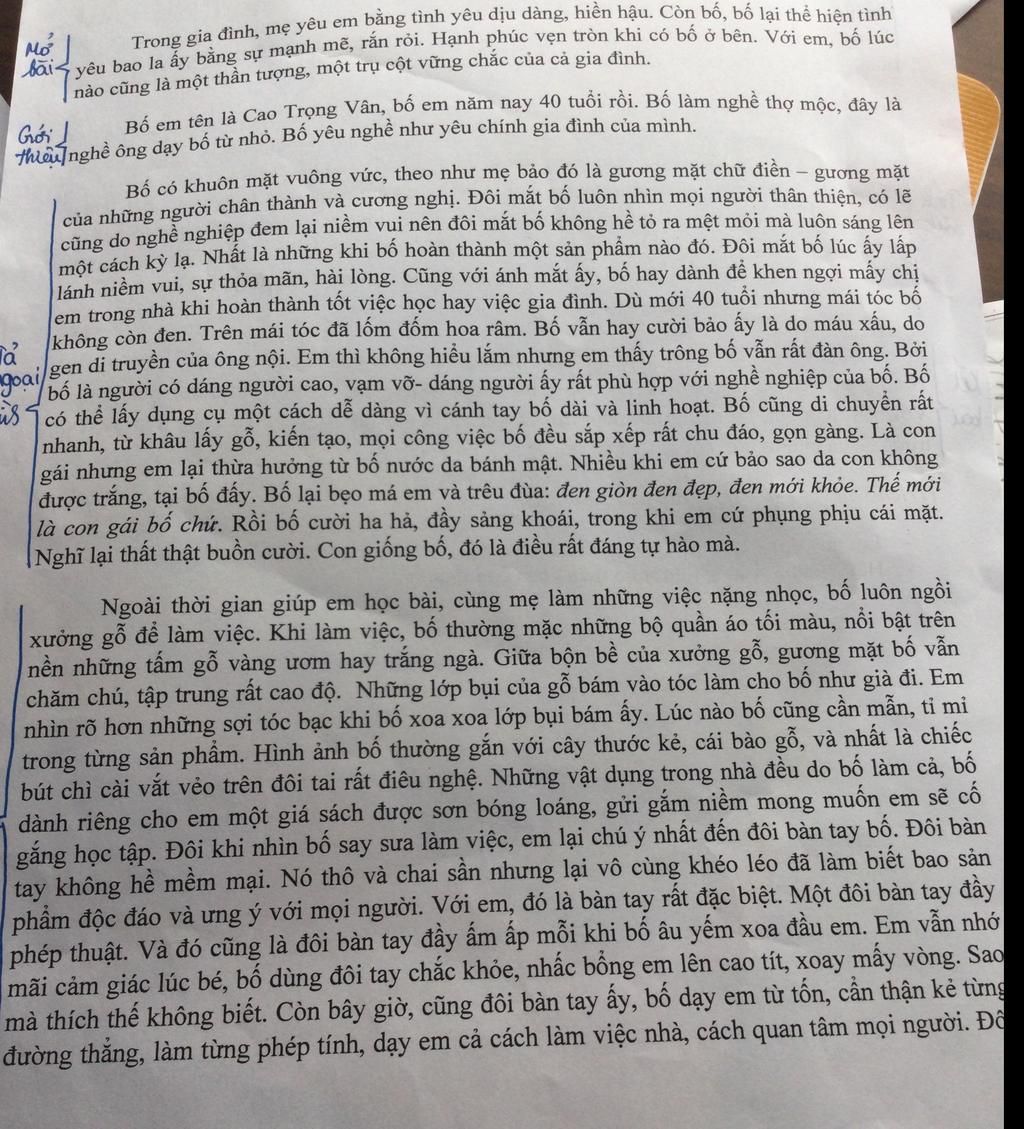 Trong gia đình, mẹ yêu em bằng tình yêu dịu dàng, hiền hậu. Còn bố, bố lại thể hiện tình
Mở bài
yêu bao la ấy bằng sự mạnh mẽ, rắn rỏi. Hạnh phúc vẹn tròn khi có bố ở bên. Với em, bố lúc
nào cũng là một thần tượng, một trụ cột vững chắc của cả gia đình.
Bố em tên là Cao Trọng Vân, bố em năm nay 40 tuổi rồi. Bố làm nghề thợ mộc, đây là
Giới thiệu
nghề ông dạy bố từ nhỏ. Bố yêu nghề như yêu chính gia đình của mình.
Bố có khuôn mặt vuông vức, theo như mẹ bảo đó là gương mặt chữ điền – gương mặt
của những người chân thành và cương nghị. Đôi mắt bố luôn nhìn mọi người thân thiện, có lẽ
cũng do nghề nghiệp đem lại niềm vui nên đôi mắt bố không hề tỏ ra mệt mỏi mà luôn sáng lên
một cách kỳ lạ. Nhất là những khi bố hoàn thành một sản phẩm nào đó. Đôi mắt bố lúc ấy lấp
lánh niềm vui, sự thỏa mãn, hài lòng. Cũng với ánh mắt ấy, bố hay dành để khen ngợi mấy chị
em trong nhà khi hoàn thành tốt việc học hay việc gia đình. Dù mới 40 tuổi nhưng mái tóc bố
không còn đen. Trên mái tóc đã lốm đốm hoa râm. Bố vẫn hay cười bảo ấy là do máu xấu, do
gen di truyền của ông nội. Em thì không hiểu lắm nhưng em thấy trông bố vẫn rất đàn ông. Bởi
bố là người có dáng người cao, vạm vỡ- dáng người ấy rất phù hợp với nghề nghiệp của bố. Bố
có thể lấy dụng cụ một cách dễ dàng vì cánh tay bố dài và linh hoạt. Bố cũng di chuyển rất
nhanh, từ khâu lấy gỗ, kiến tạo, mọi công việc bố đều sắp xếp rất chu đáo, gọn gàng. Là con
gái nhưng em lại thừa hưởng từ bố nước da bánh mật. Nhiều khi em cứ bảo sao da con không
được trắng, tại bố đấy. Bố lại bẹo má em và trêu đùa: đen giòn đen đẹp, đen mới khỏe. Thế mới
là con gái bố chứ. Rồi bố cười ha hả, đầy sảng khoái, trong khi em cứ phụng phịu cái mặt.
Nghĩ lại thất thật buồn cười. Con giống bố, đó là điều rất đáng tự hào mà.
Ngoài thời gian giúp em học bài, cùng mẹ làm những việc nặng nhọc, bố luôn ngồi
xưởng gỗ để làm việc. Khi làm việc, bố thường mặc những bộ quần áo tối màu, nổi bật trên
nền những tấm gỗ vàng ươm hay trắng ngà. Giữa bộn bề của xưởng gỗ, gương mặt bố vẫn
chăm chú, tập trung rất cao độ. Những lớp bụi của gỗ bám vào tóc làm cho bố như già đi. Em
nhìn rõ hơn những sợi tóc bạc khi bố xoa xoa lớp bụi bám ấy. Lúc nào bố cũng cần mẫn, tỉ mỉ
trong từng sản phẩm. Hình ảnh bố thường gắn với cây thước kẻ, cái bào gỗ, và nhất là chiếc
bút chì cài vắt vẻo trên đôi tai rất điêu nghệ. Những vật dụng trong nhà đều do bố làm cả, bố
dành riêng cho em một giá sách được sơn bóng loáng, gửi gắm niềm mong muốn em sẽ cố
gắng học tập. Đôi khi nhìn bố say sưa làm việc, em lại chú ý nhất đến đôi bàn tay bố. Đôi bàn
tay không hề mềm mại. Nó thô và chai sần nhưng lại vô cùng khéo léo đã làm biết bao sản
phẩm độc đáo và ưng ý với mọi người. Với em, đó là bàn tay rất đặc biệt. Một đôi bàn tay đầy
phép thuật. Và đó cũng là đôi bàn tay đầy ấm áp mỗi khi bố âu yếm xoa đầu em. Em vẫn nhớ
mãi cảm giác lúc bé, bố dùng đôi tay chắc khỏe, nhấc bổng em lên cao tít, xoay mấy vòng. Sao
mà thích thế không biết. Còn bây giờ, cũng đôi bàn tay ấy, bố dạy em từ tốn, cẩn thận kẻ từng
đường thẳng, làm từng phép tính, dạy em cả cách làm việc nhà, cách quan tâm mọi người.